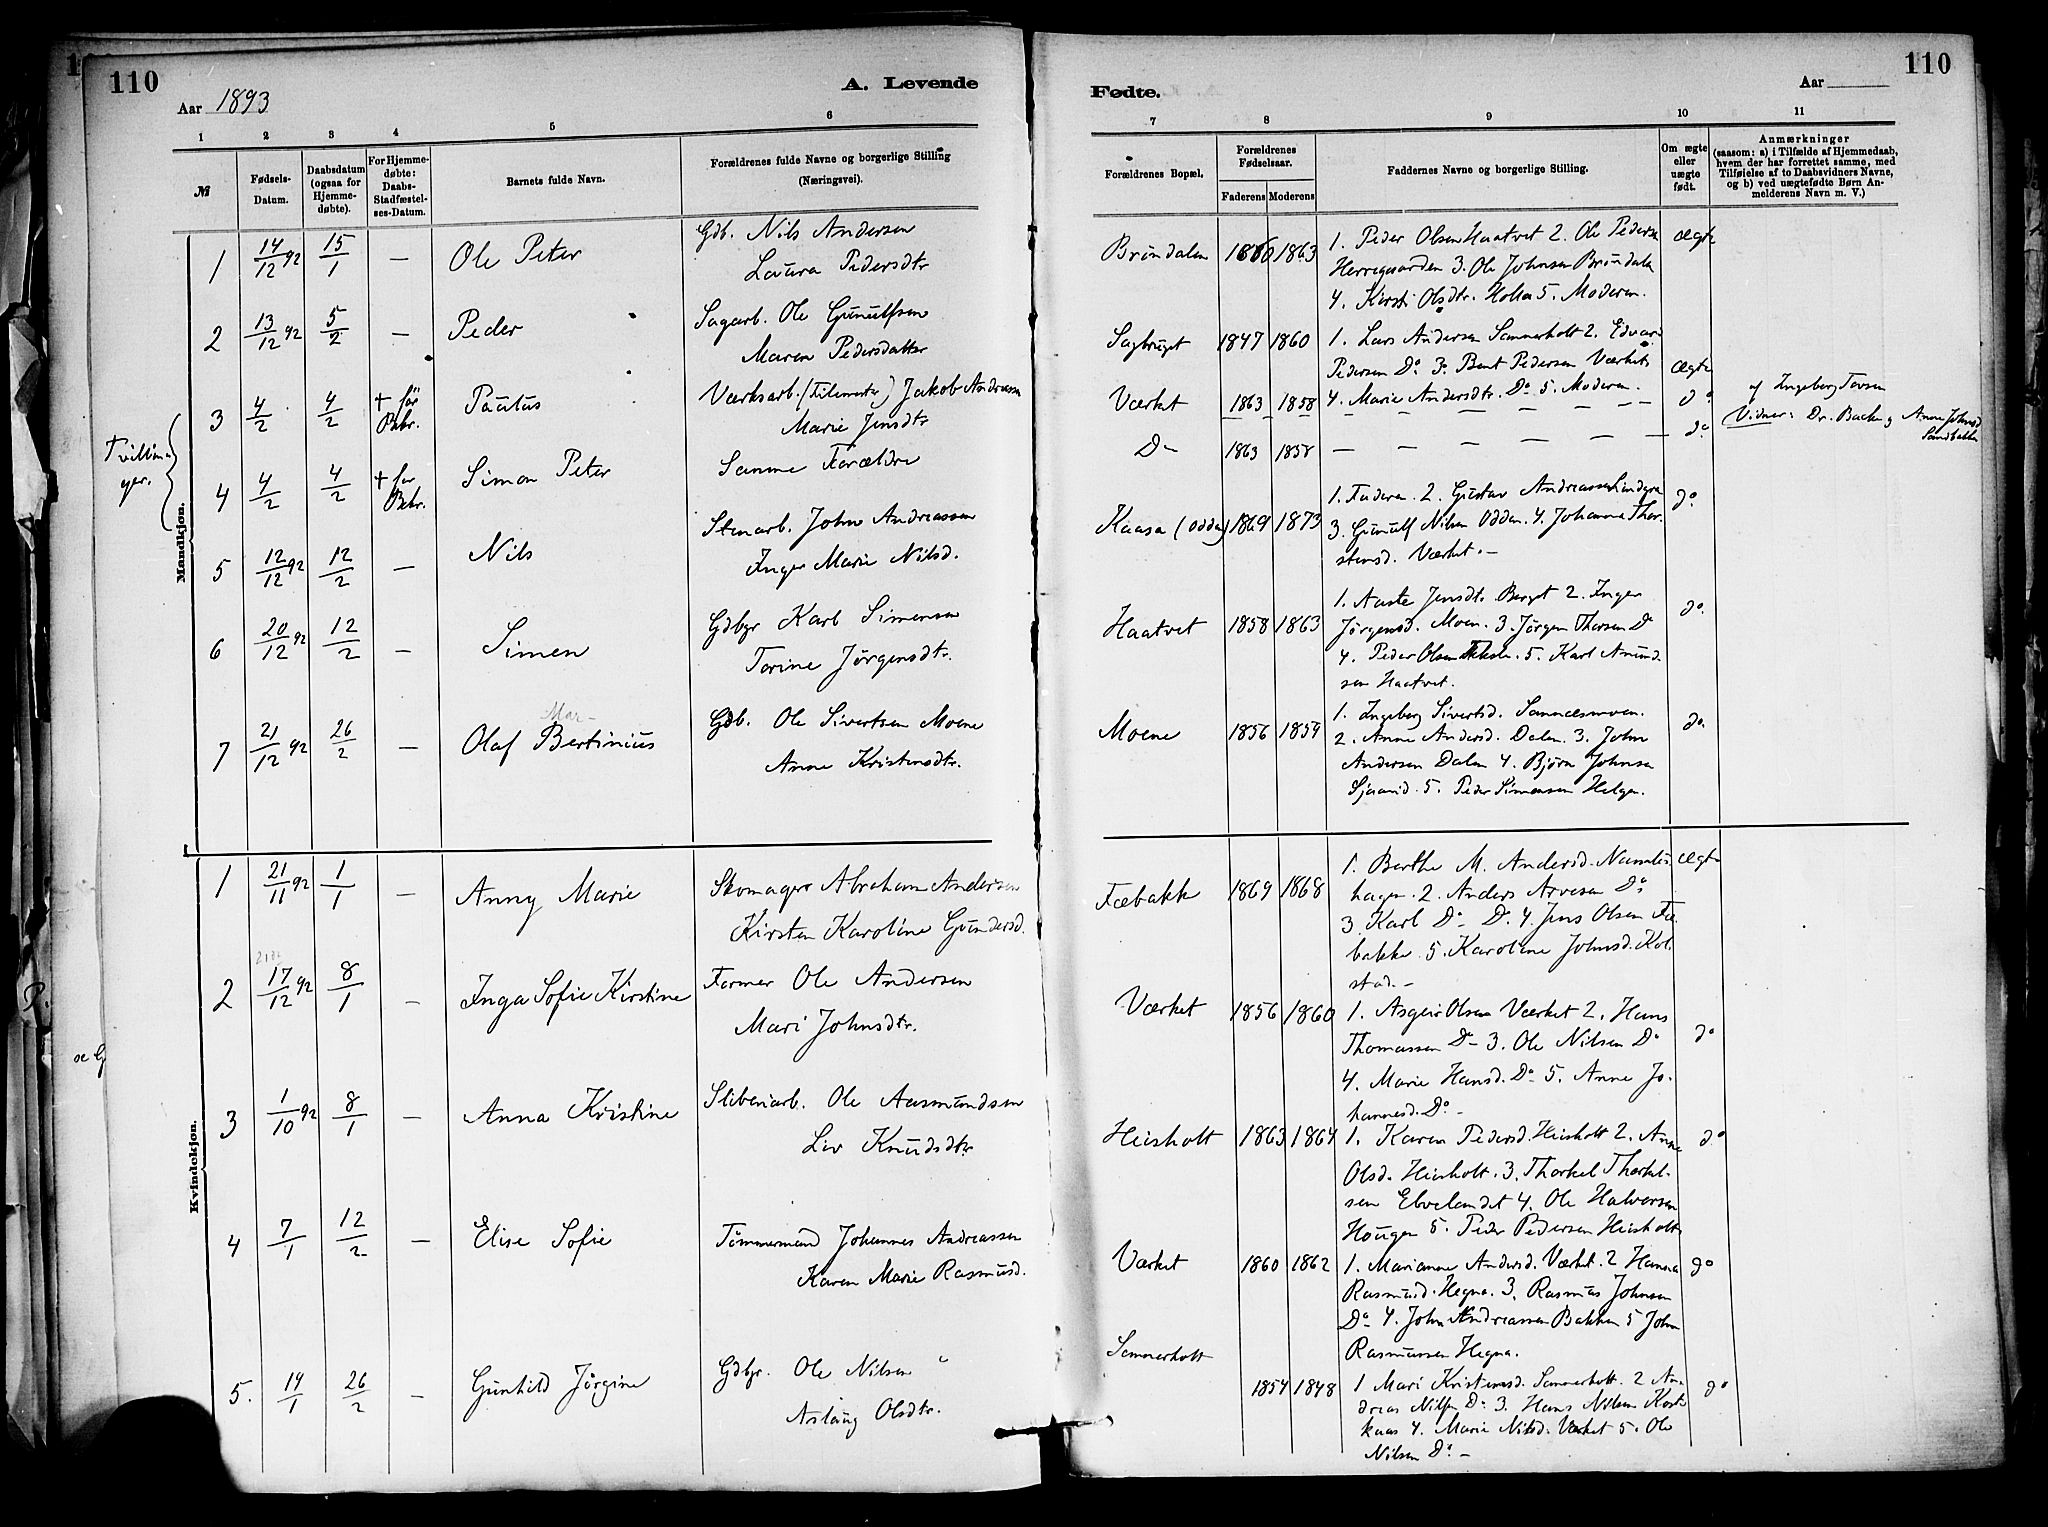 110
Aar 1893
A. Levende
1 2 3 4 5 6
№
Fødsels-
Datum.
Daabsdatum
(ogsaa for
Hjemme-
døbte).
For Hjemme-
døbte:
Daabs-
Stadfæstel-
ses-Datum.
Barnets fulde Navn.
Forældrenes fulde Navne og borgerlige Stilling
(Næringsvei).
Mandkjøn.
1 14/12 92 15/1 — Ole Peter Gdb. Nils Andersen
Laura Pedersdtr
2 13/12 92 5/2 — Peder Sagarb. Ole Gunulfsen
Maren Pedersdatter
Tvillin-
ger.
3 4/2 4/2 + før Paulus Værksarb. Jakob Andreassen
Bekr. Marie Jensdtr
4 4/2 4/2 + før Simon Peter Samme Forældre
Bekr.
5 12/12 92 12/2 — Nils Stenarb. John Andreassen
Inger Marie Nilsd.
6 20/12 92 12/2 — Simen Gdbgr Karl Simensen
Torine Jørgensdtr.
Mar-
7 21/12 92 26/2 — Olaf Bertinius Gdb. Ole Sivertsen Moene
Anne Kristensdtr.
Kvindekjøn.
1 21/11 92 1/1 — Anny Marie Skomager Abraham Andersen
Kirsten Karoline Gundersd.
2 17/12 92 8/1 — Inga Sofie Kirstine Former Ole Andersen
Mari Johnsdtr.
3 1/10 92 8/1 — Anna Kristine Sliberiarb. Ole Aasmundsen
Liv Knudsdtr
4 7/1 12/2 — Elise Sofie Tømmermand Johannes Andreassen
Karen Marie Rasmusd.
5. 14/1 26/2 — Gunhild Jørgine Gdbgr. Ole Nilsen
Aslaug Olsdtr.
og G
110
Aar
Fødte.
7 8 9 10 11
Forældrenes Bopæl.
Forældrenes
Fødselsaar.
Faderens Moderens
Faddernes Navne og borgerlige Stilling.
Om ægte
eller
uægte
født.
Anmærkninger
(saasom: a) i Tilfælde af Hjemmedaab,
hvem der har forrettet samme, med
Tilføielse af to Daabsvidners Navne,
og b) ved uægtefødte Børn An-
melderens Navn m. V.)
Brøndalen 1863 1. Peder Olsen Haatvet 2. Ole Pedersen Ægte
Herregaarden 3. Ole Johnsen Brøndalen
4. Kirsti Olsdtr. Holla 5. Moderen.
Sagbruget 1847 1860 1. Lars Andersen Sannerholt 2. Edvard
Pedersen Do 3. Bent Pedersen Værket Ægte
Værket 1863 1858 4. Marie Andersdtr. Do 5. Moderen. do
af Ingeborg Tovsen
Vidner: Dr. Backe og Anne Johnsd.
Sandbakken
Do 1863 1858 — — — — — — do
Kaasa (Odden) 1869 1873 1. Faderen. 2. Gustav Andreassen
3. Gunulf Nilsen Odden. 4. Johanne Thor-
stensd. Værket. — do
Haatvet 1858 1863 1. Aaste Jensdt. Berget 2. Inger
Jørgensd. Moen. 3. Jørgen Thorsen Do
4. Peder Olsen 5. Karl Amund-
sen Haatvet. do.
Moene 1856 1859 1. Ingeborg Sivertsd. Sannæsmoen.
2. Anne Andersd. Dalen. 3. John
Andersen Dalen 4. Bjørn Johnsen
5. Peder Simensen Helgen. do.
Fæbakke 1869 1868 1. Berthe M. Andersd. Namløs- Ægte
hagen. 2. Anders Arvesen Do
3. Karl Do Do. 4. Jens Olsen Fæ-
bakke 5. Karoline Johnsd. Kol-
stad. —
Værket 1856 1860 1. Asgeir Olsen Værket 2. Hans
Thomassen Do 3. Ole Nilsen Do do
4. Marie Hansd. Do 5. Anne Jo-
hannesd. Do —
Heisholt 1863 1864 1. Karen Pedersd. Heisholt 2. Anne do
Olsd. Heisholt. 3. Thorkel Thorkel-
sen 4. Ole Halvorsen
Haugen 5. Peder Pedersen Heisholt
Værket 1860 1862 1. Marianne Andersd. Værket. 2 Hanna do
Rasmusd. Hegna. 3. Rasmus Johnsen
Do 4. John Andreassen Bakken 5 John
Rasmussen Hegna.
Sannerholt
1854 1848 1 Mari Kristensd. Sannerholt. 2 An- do
dreas Nilsen Do 3. Hans Nilsen
4. Marie Nilsd. Værket 5. Ole
Nilsen Do —